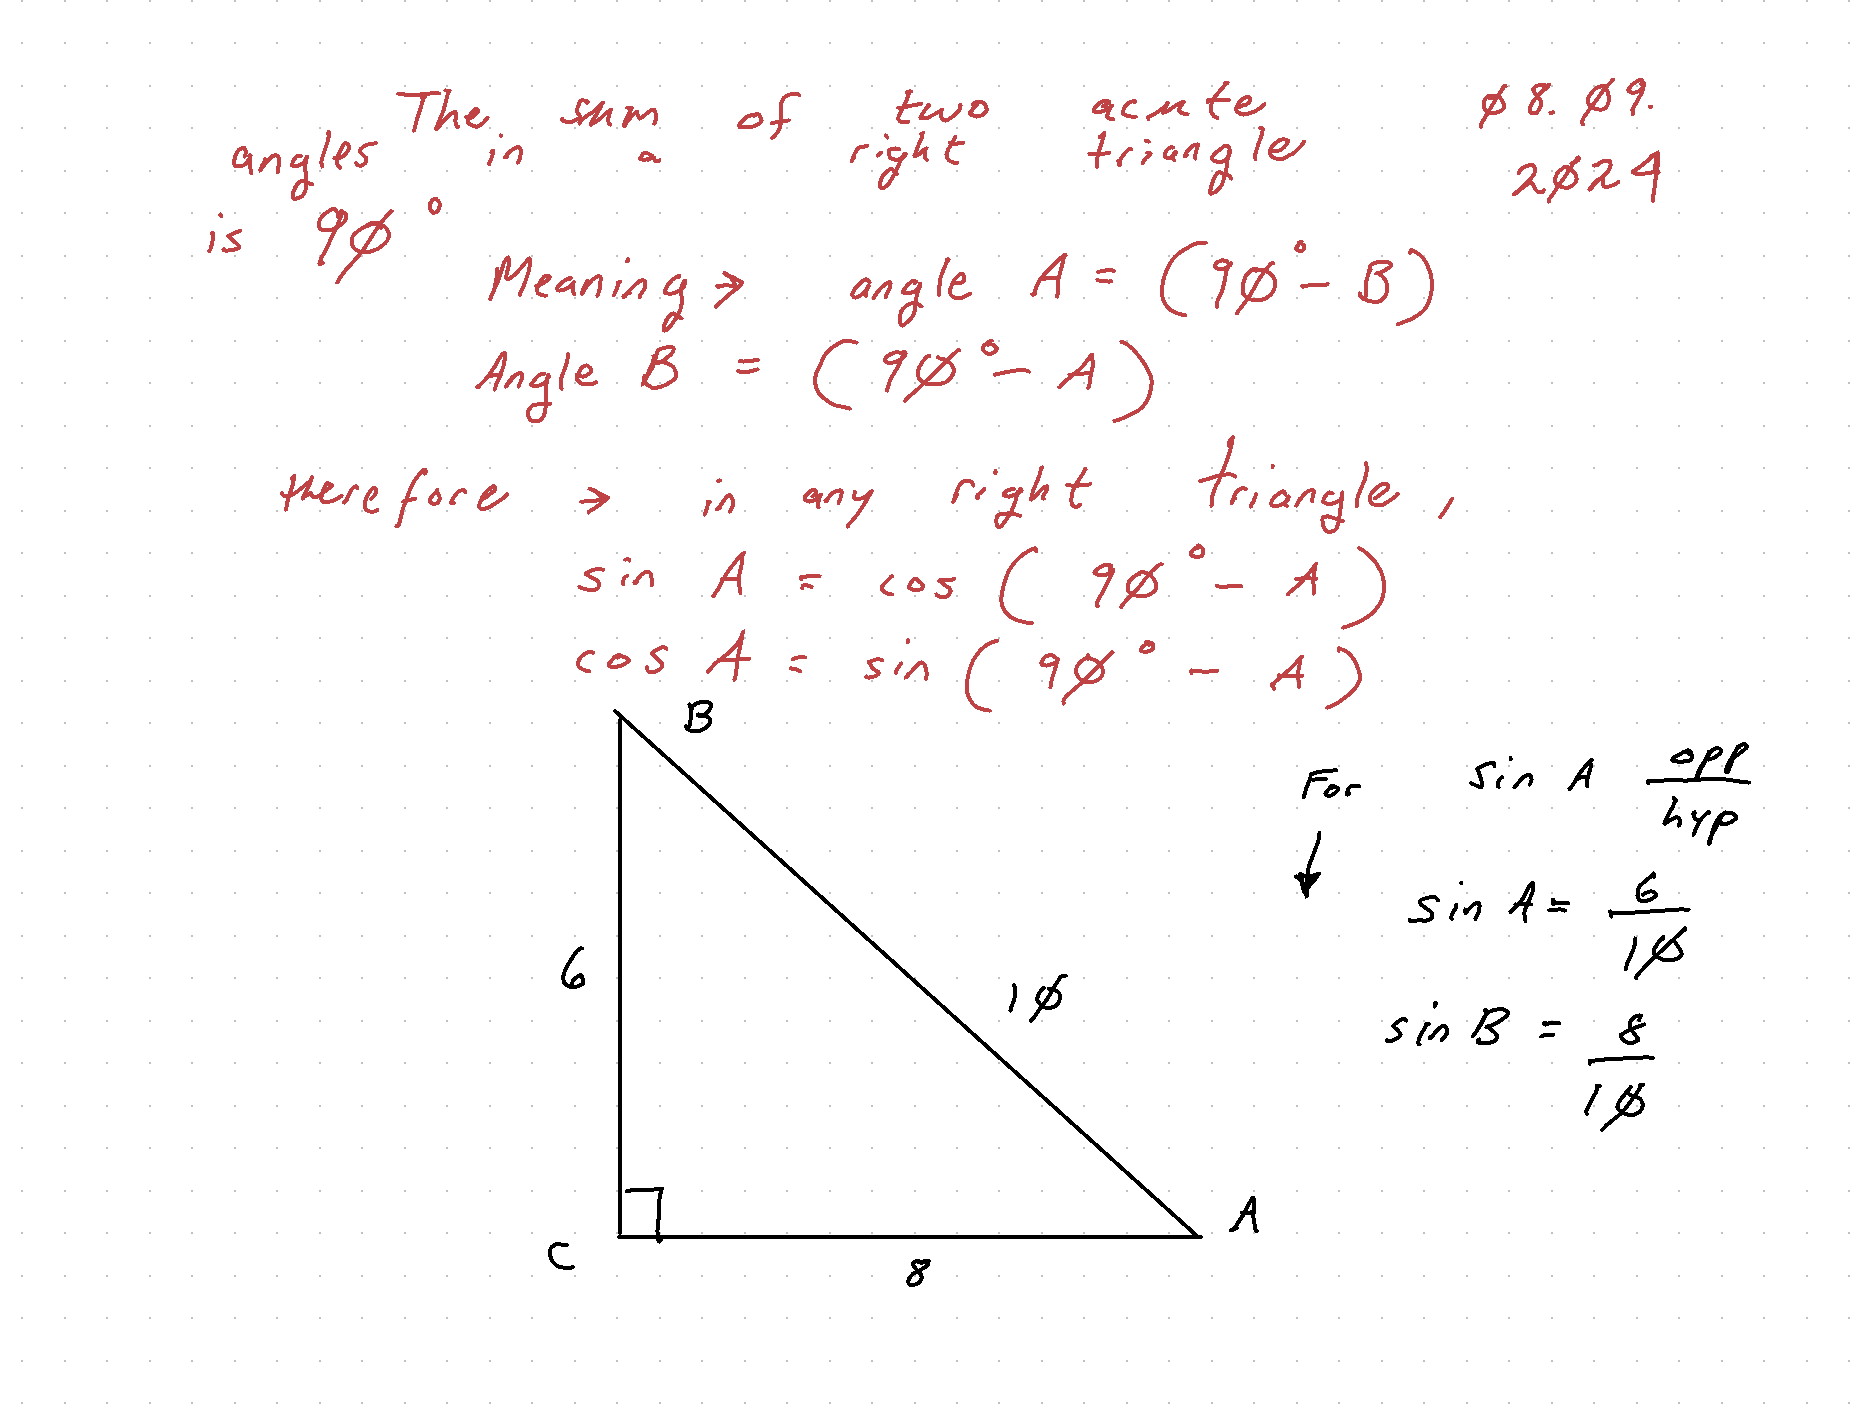 The sum of two acute
angles in a right triangle
is 9∅°
∅8.∅9.
2∅24
Meaning → angle A = (9∅° - B)
Angle B = (9∅° - A)
therefore → in any right triangle,
sin A = cos (9∅° - A)
cos A = sin (9∅° - A)
B
6
1∅
C
8
A
For sin A opp/hyp
↓
sin A = 6/1∅
sin B = 8/1∅